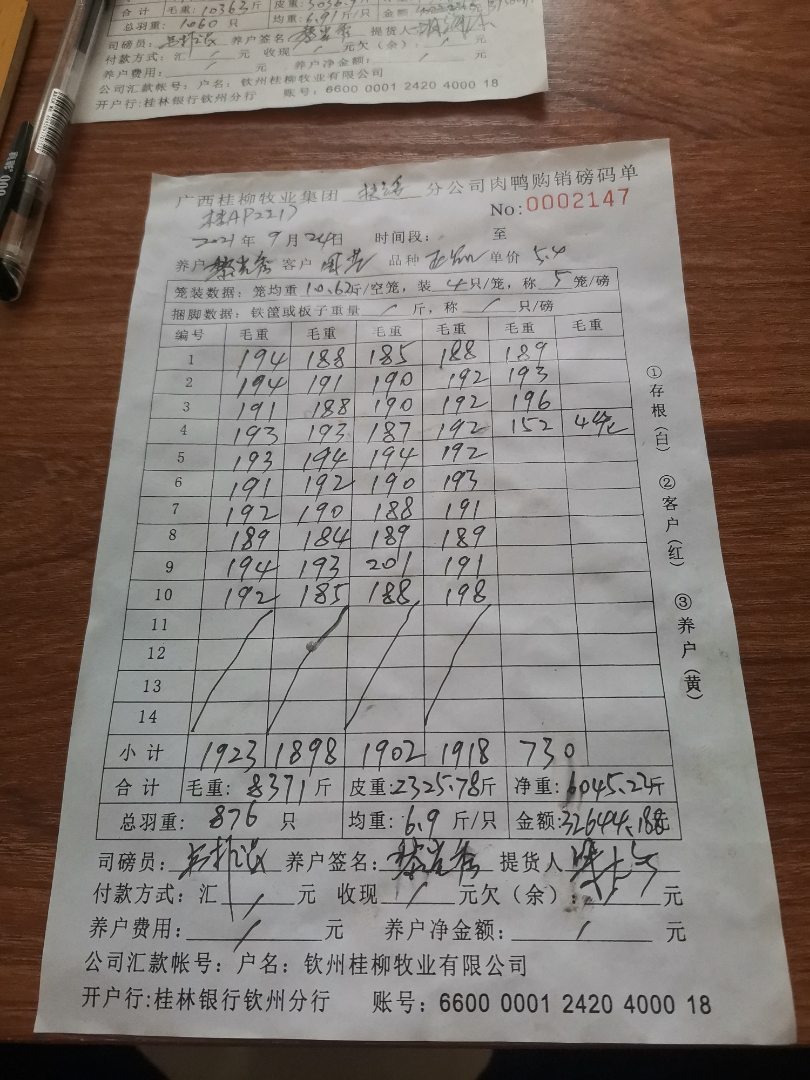 合计 毛重: 10363斤 皮重: 斤 金额
总羽重: 1060 只 均重: 6.91 斤/只
司磅员: 养户签名: 提货人
付款方式: 汇 / 元 收现 / 元欠(余): / 元
养户费用: / 元 养户净金额: / 元
公司汇款帐号: 户名: 钦州桂柳牧业有限公司
开户行:桂林银行钦州分行 账号: 6600 0001 2420 4000 18
广西桂柳牧业集团 分公司肉鸭购销磅码单
No:0002147
2021年9月24日 时间段: 至
养户 客户 品种 单价 5.4
笼装数据: 笼均重 10.62斤/空笼, 装 4只/笼, 称 5笼/磅
捆脚数据: 铁筐或板子重量 / 斤, 称 / 只/磅
编号 毛重 毛重 毛重 毛重 毛重 毛重
1 194 188 185 188 189
2 194 191 190 192 193
3 191 188 190 192 196
4 193 193 187 192 152 4笼
5 193 194 194 192
6 191 192 190 193
7 192 190 188 191
8 189 184 189 189
9 194 193 201 191
10 192 185 188 198
11
12
13
14
小计 1923 1898 1902 1918 730
合计 毛重: 8371斤 皮重:2325.78斤 净重:6045.22斤
总羽重: 876 只 均重:6.9 斤/只 金额:32644.188元
司磅员: 养户签名: 提货人
付款方式: 汇 / 元 收现 / 元欠(余): / 元
养户费用: / 元 养户净金额: / 元
公司汇款帐号: 户名: 钦州桂柳牧业有限公司
开户行:桂林银行钦州分行 账号: 6600 0001 2420 4000 18
①存根(白) ②客户(红) ③养户(黄)